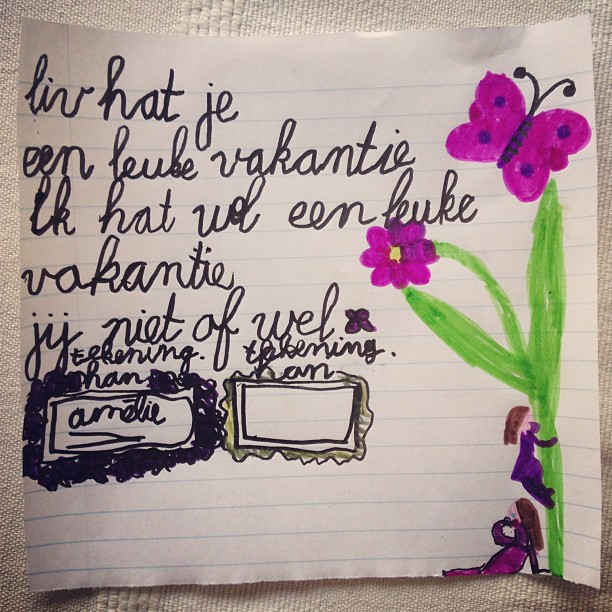 liv hat je
een leuke vakantie
Ik hat wel een leuke
vakantie
jij niet of wel
tekening. tekening.
han han
amélie